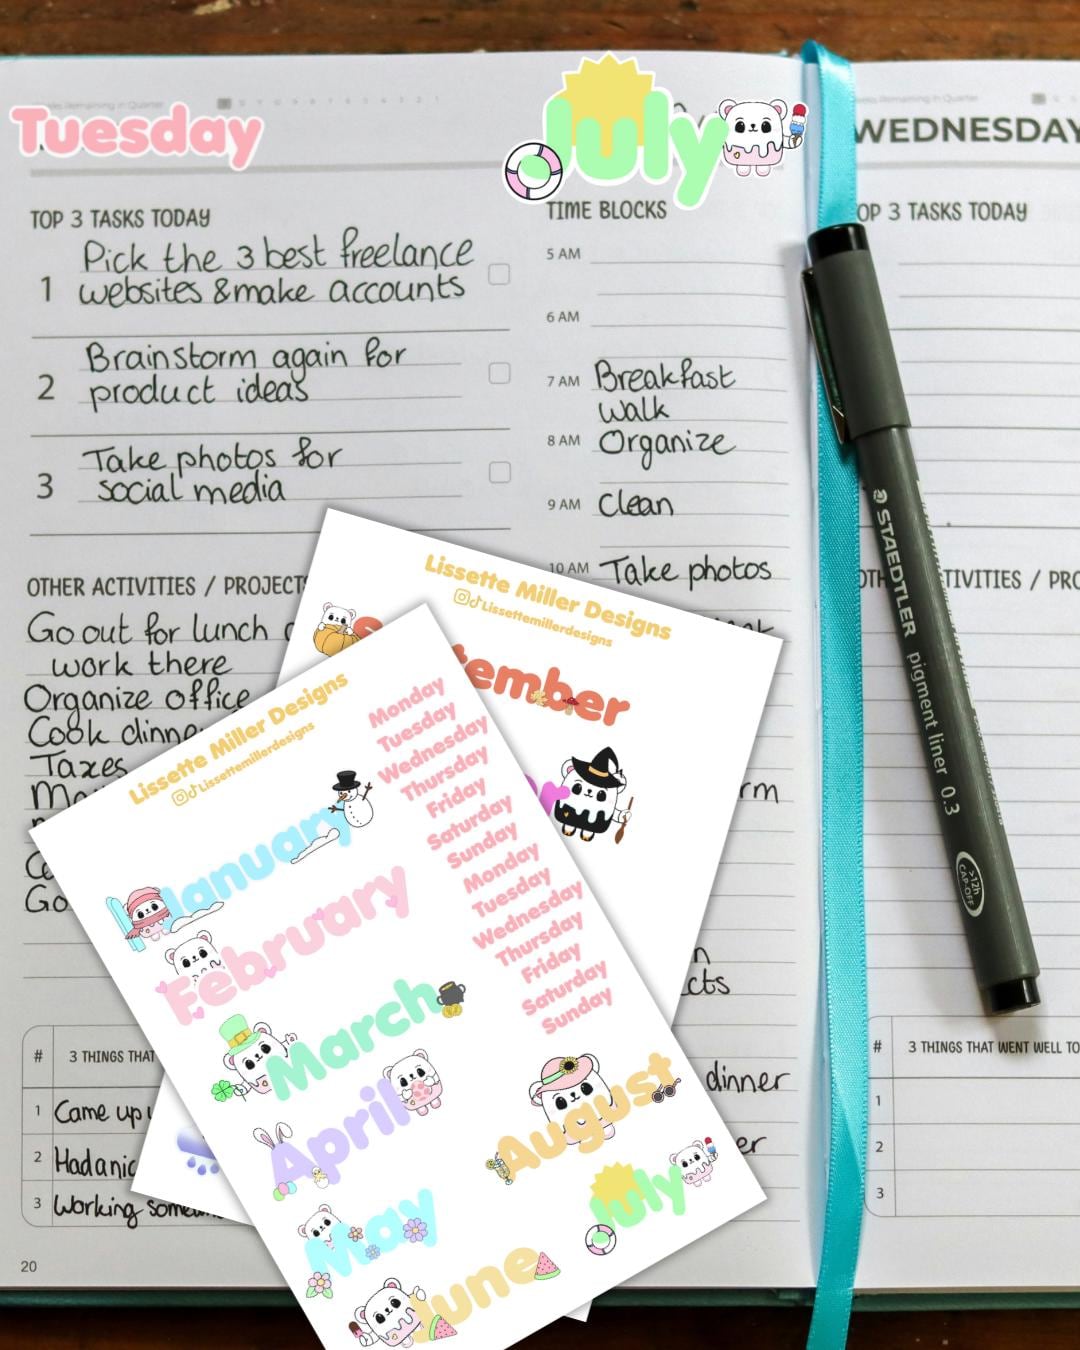 Tuesday
July
WEDNESDAY
TOP 3 TASKS TODAY
1 Pick the 3 best freelance
websites & make accounts
2 Brainstorm again for
product ideas
3 Take photos for
social media
TIME BLOCKS
5 AM
6 AM
7 AM Breakfast
walk
8 AM Organize
9 AM Clean
10 AM Take photos
OTHER ACTIVITIES / PROJECTS
Go out for lunch
work there
Organize office
Cook dinne
Taxes
Go
dinner
# 3 THINGS THAT
1 Came up
2 Had a nic
3 Working some
20
Lissette Miller Designs
Lissettemillerdesigns
tember
Lissette Miller Designs
Lissettemillerdesigns
January
February
March
April
May
June
August
July
Monday
Tuesday
Wednesday
Thursday
Friday
Saturday
Sunday
Monday
Tuesday
Wednesday
Thursday
Friday
Saturday
Sunday
OP 3 TASKS TODAY
TIVITIES / PRO
# 3 THINGS THAT WENT WELL TO
1
2
3
STAEDTLER pigment liner 0.3
>12h
CAP-OFF